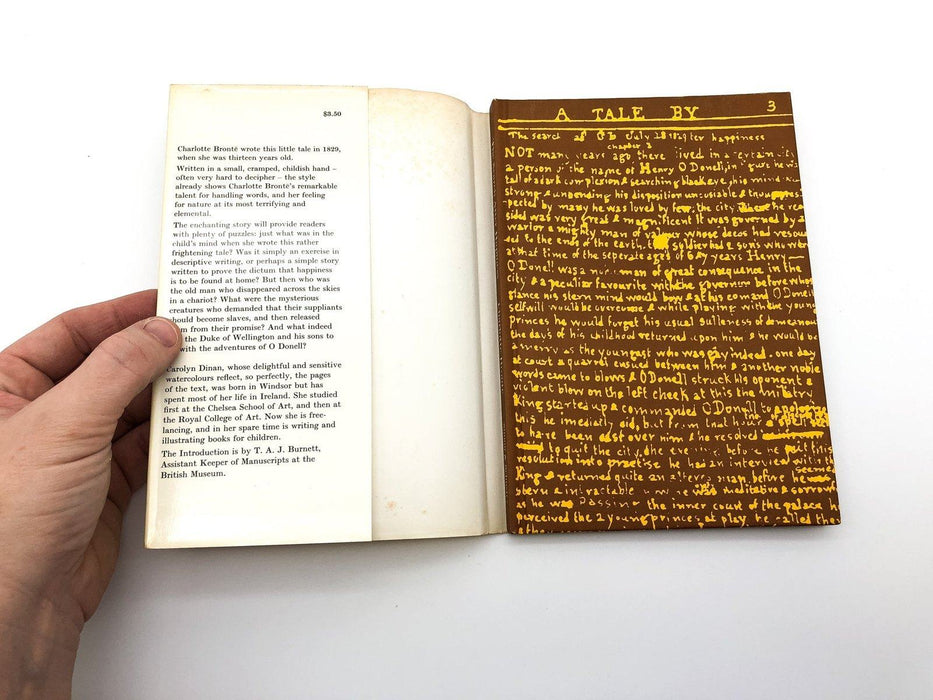 $3.50
Charlotte Brontë wrote this little tale in 1829,
when she was thirteen years old.
Written in a small, cramped, childish hand –
often very hard to decipher – the style
already shows Charlotte Brontë's remarkable
talent for handling words, and her feeling
for nature at its most terrifying and
elemental.
The enchanting story will provide readers
with plenty of puzzles: just what was in the
child's mind when she wrote this rather
frightening tale? Was it simply an exercise in
descriptive writing, or perhaps a simple story
written to prove the dictum that happiness
is to be found at home? But then who was
the old man who disappeared across the skies
in a chariot? What were the mysterious
creatures who demanded that their suppliants
should become slaves, and then released
from their promise? And what indeed
the Duke of Wellington and his sons to
with the adventures of O Donell?
Carolyn Dinan, whose delightful and sensitive
watercolours reflect, so perfectly, the pages
of the text, was born in Windsor but has
spent most of her life in Ireland. She studied
first at the Chelsea School of Art, and then at
the Royal College of Art. Now she is free-
lancing, and in her spare time is writing and
illustrating books for children.
The Introduction is by T. A. J. Burnett,
Assistant Keeper of Manuscripts at the
British Museum.
A TALE BY 3
The search July 28 1829 happiness
chapter
NOT many years ago there lived in a certain city
a person of the name of Henry O Donell, in he was
tall of a dark complexion & searching black eye, his mind
strong & unbending his disposition unsociable & though
pected by many he was loved by few. the city where he
sided was very great & magnificent It was governed by a
warior a mighty man of valour whose deeds had resoun
ed to the ends of the earth. soldier had 2 sons who were
at that time of the seperate ages of 6 & 7 years Henry
O Donell was a man of great consequence in the
city & a peculiar favourite with the governor before whose
glance his stern mind would bow & at his comand O Donell's
selfwill would be overcome & while playing with the young
Princes he would forget his usual sulleness of demeanou
the days of his childhood returned upon him & he would be
as merry as the youngest who was gay indeed. one day
at court a quarrel ensued between him & another noble
words came to blows & O Donell struck his oponent a
violent blow on the left cheek at this the military
King started up & commanded O Donell to apologise
this he imediatly did, but from that hour a spell
to have been cast over him & he resolved
to quit the city. the evening before he put this
resolution into practise he had an interview with the
King & returned quite an altered man. before he seemed
stern & intractable now he was meditative & sorrow
as he was passing the inner court of the palace he
perceived the 2 young princes at play, he called them